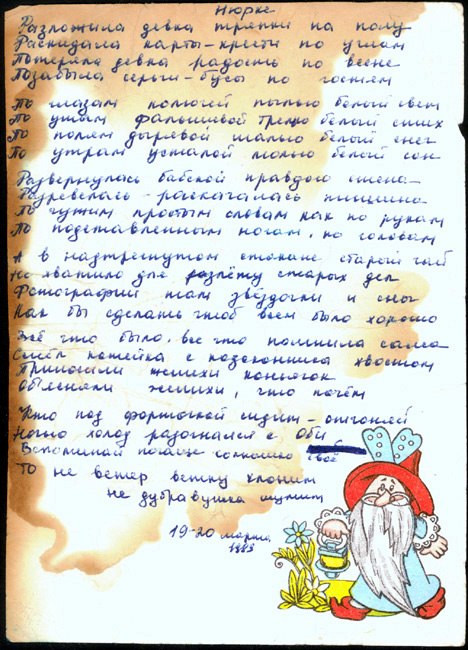 Нюрке
Разложила девка тряпки на полу
Раскидала карты-крести по углам
Потеряла девка радость по весне
Позабыла серьги-бусы по гостям
По глазам колючей пылью белый свет
По ушам фальшивой трелью белый стих
По полям дырявой шалью белый снег
По утрам усталой молью белый сон
Развернулась бабской правдою стена
Разревелась-раскачалась тишина
По чужим простым словам как по рукам
По подставленным ногам, по головам
А в надтреснутом стакане старый чай
Не хватило для разлёту старых дел
Фотографии там звёздочки и сны
Как бы сделать чтоб всем было хорошо
Всё что было, все что помнила сама
Смёл котейка с подоконника хвостом
Приносили женихи коньячок
Объясняли женихи, что почём
Кто под форточкой сидит - отгоняй
Ночью холод разогнался с Оби
Вспоминай почаще солнышко своё
То не ветер ветку клонит
не дубравушка шумит
19-20 марта
1989